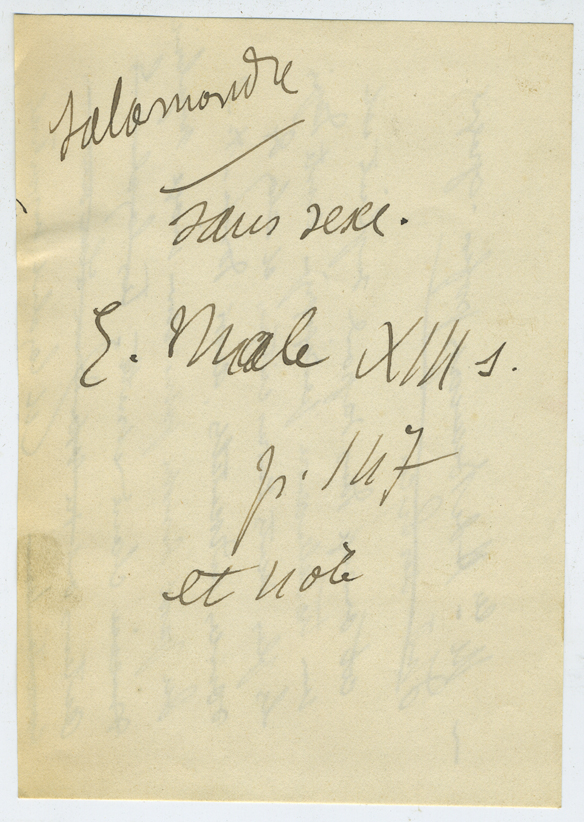 Salamandre
sans sexe.
E. Male XIII s.
p. 147
et note